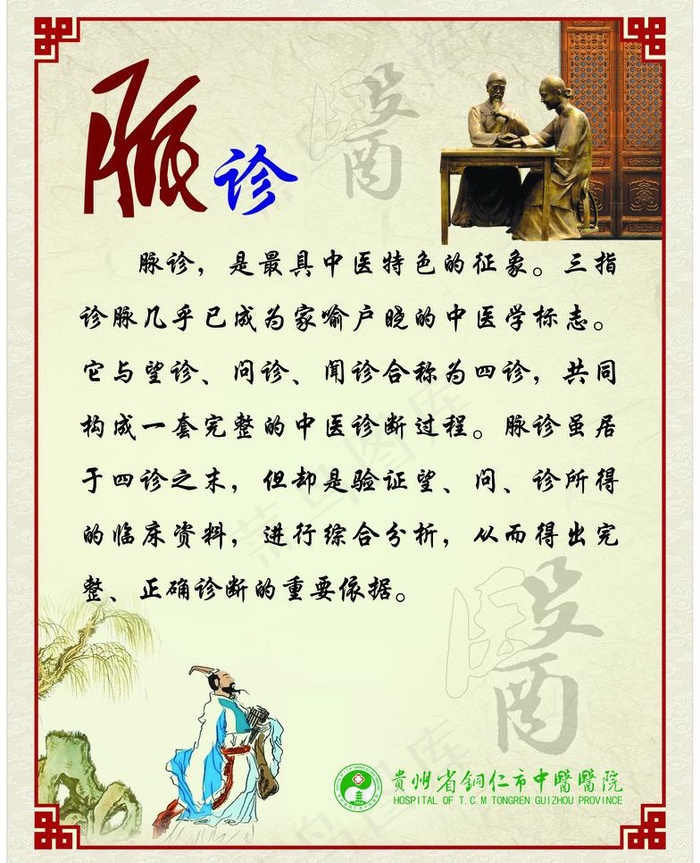 脉诊
醫
脉诊，是最具中医特色的征象。三指
诊脉几乎已成为家喻户晓的中医学标志。
它与望诊、问诊、闻诊合称为四诊，共同
构成一套完整的中医诊断过程。脉诊虽居
于四诊之末，但却是验证望、问、诊所得
的临床资料，进行综合分析，从而得出完
整、正确诊断的重要依据。
醫
貴州省銅仁市中醫醫院
HOSPITAL OF T.C.M TONGREN GUIZHOU PROVINCE